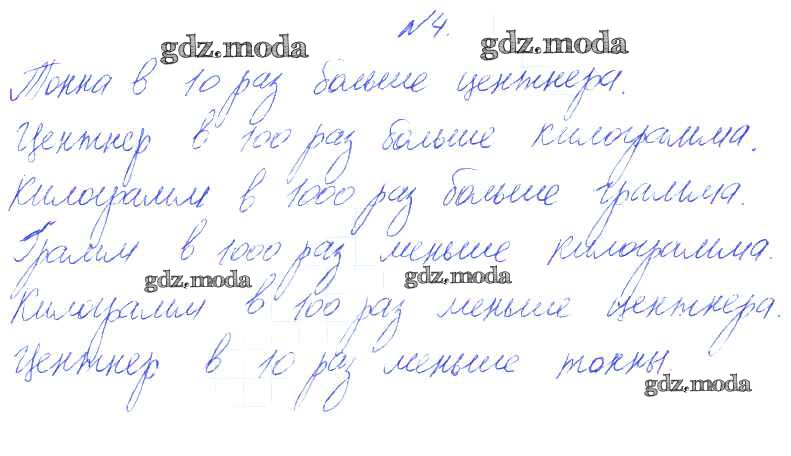 №4.
gdz.moda gdz.moda
Тонна в 10 раз больше центнера.
Центнер в 100 раз больше килограмма.
Килограмм в 1000 раз больше грамма.
Грамм в 1000 раз меньше килограмма.
gdz.moda gdz.moda
Килограмм в 100 раз меньше центнера.
Центнер в 10 раз меньше тонны.
gdz.moda